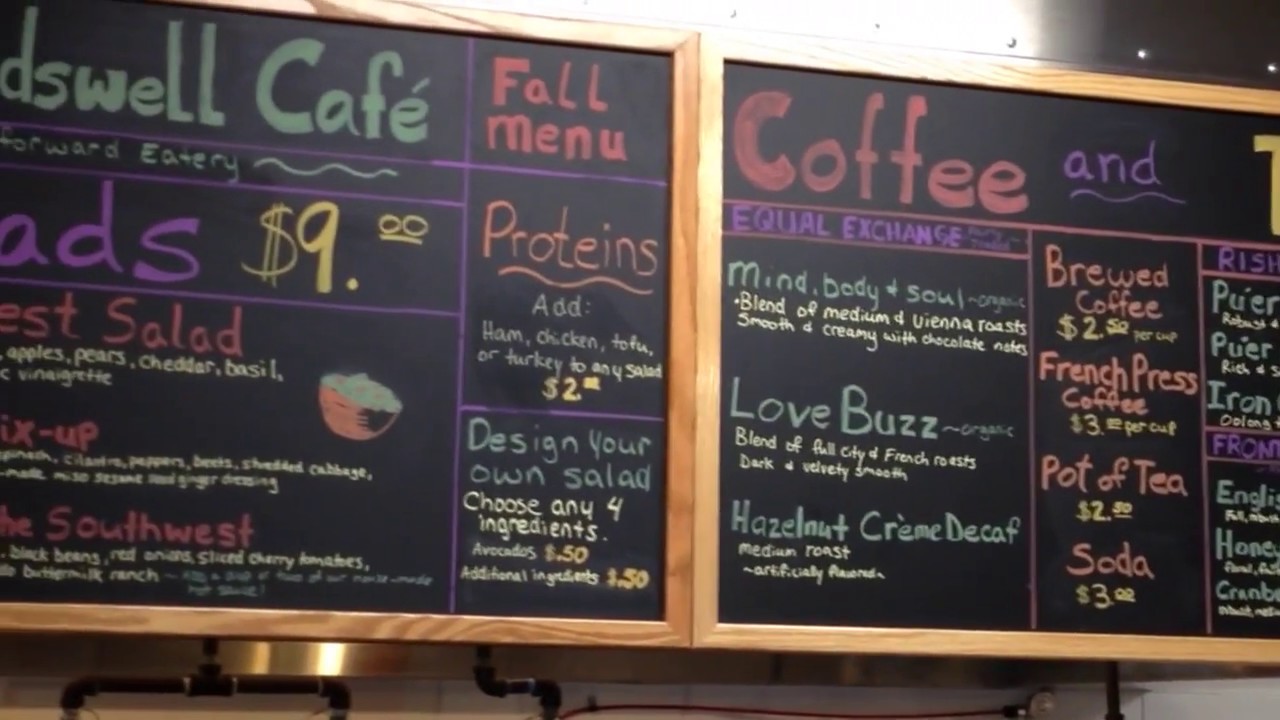 dswell Café
forward Eatery
ads $9.00
est Salad
, apples, pears, cheddar, basil,
c vinaigrette
ix-up
spinach, cilantro, peppers, beets, shredded cabbage,
-made miso sesame ginger dressing
he Southwest
, black beans, red onions, sliced cherry tomatoes,
do buttermilk ranch ~ Add a dash of two of our house-made
hot sauce!
Fall
menu
Proteins
Add:
Ham, chicken, tofu,
or turkey to any salad
$2.00
Design your
own salad
Choose any 4
ingredients.
Avocados $.50
Additional ingredients $.50
Coffee and T
EQUAL EXCHANGE
Mind, body & soul ~organic
•Blend of medium & vienna roasts
Smooth & creamy with chocolate notes
Love Buzz ~organic
Blend of full city & French roasts
Dark & velvety smooth
Hazelnut Crème Decaf
medium roast
~artificially flavored~
Brewed
Coffee
$2.50 per cup
French Press
Coffee
$3.00 per cup
Pot of Tea
$2.50
Soda
$3.00
RISH
Pu'er
Robust &
Pu'er
Rich & s
Iron
Oolong
FRONT
Englis
Full,
Hone
Cranbe